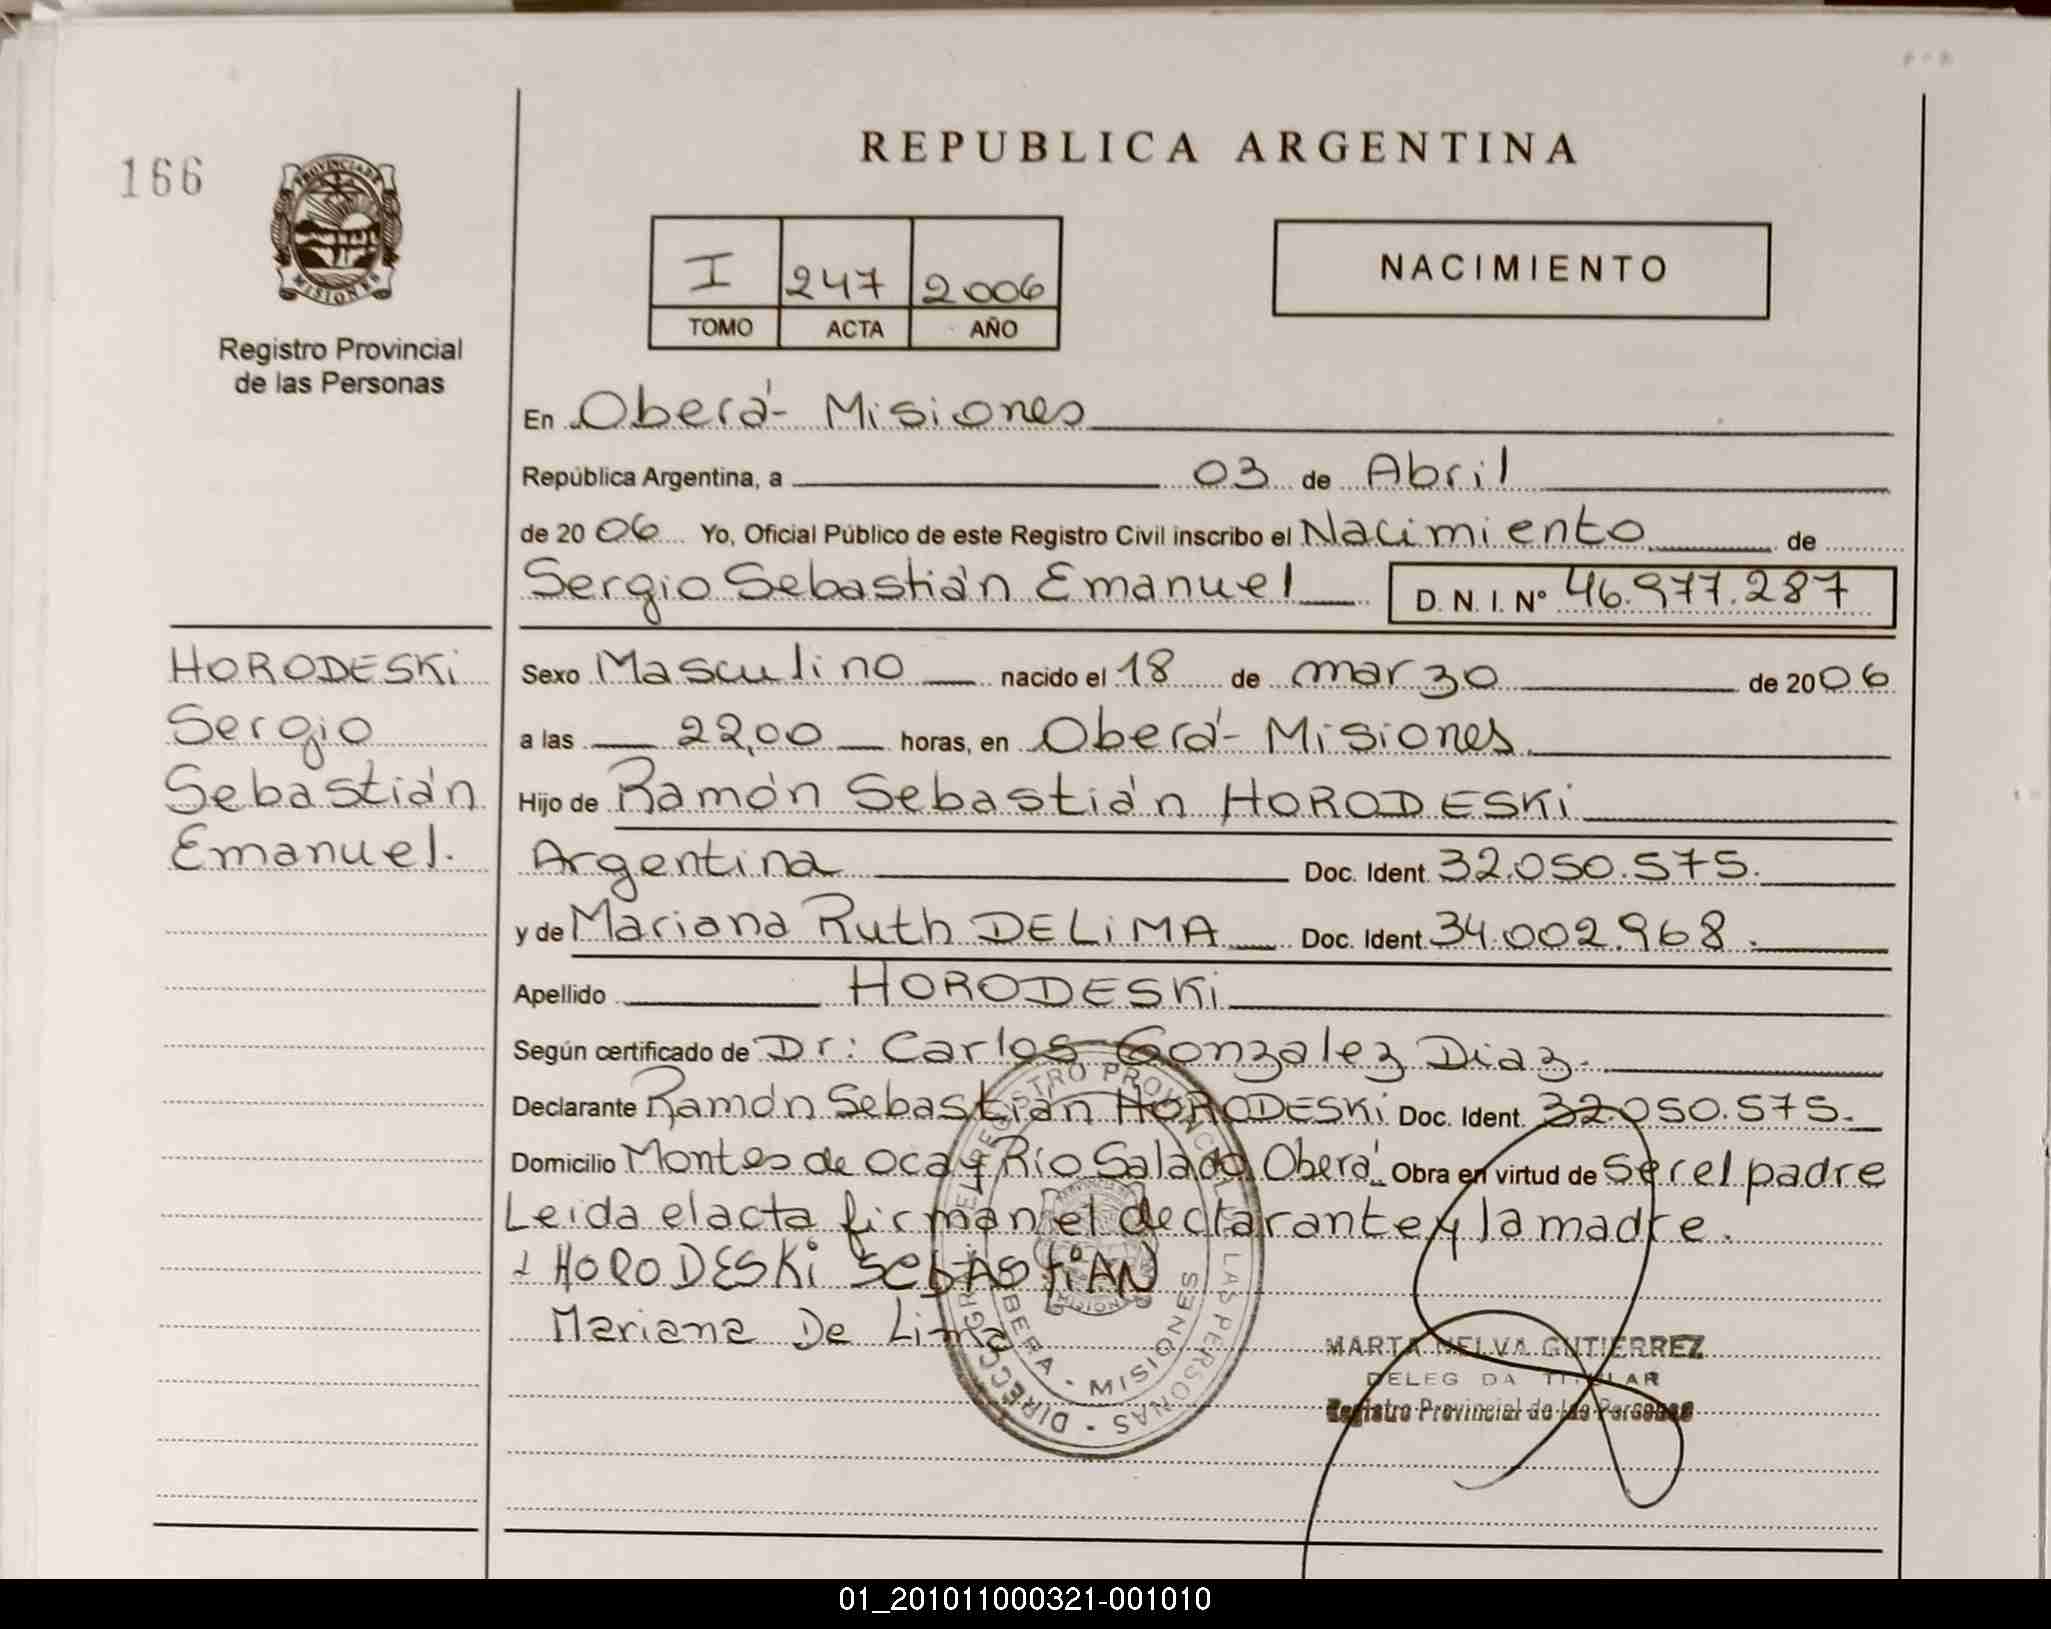 166
PROVINCIA DE
MISIONES
Registro Provincial
de las Personas
REPUBLICA ARGENTINA
I 247 2006
TOMO ACTA AÑO
NACIMIENTO
En Oberá - Misiones
República Argentina, a 03 de Abril
de 20 06 Yo, Oficial Público de este Registro Civil inscribo el Nacimiento de
Sergio Sebastián Emanuel D. N. I. Nº 46.977.287
HORODESKi
Sergio
Sebastián
Emanuel.
Sexo Masculino nacido el 18 de marzo de 20 06
a las 22,00 horas, en Oberá - Misiones
Hijo de Ramón Sebastián HORODESKi
Argentina Doc. Ident. 32.050.575.
y de Mariana Ruth DE LiMA Doc. Ident. 34.002.968.
Apellido HORODESKi
Según certificado de Dr: Carlos Gonzalez Diaz.
Declarante Ramón Sebastián HORODESKi Doc. Ident. 32.050.575.
Domicilio Montes de oca y Río Salado Oberá Obra en virtud de ser el padre
Leida el acta firman el declarante y la madre.
HORODESKi SEBASTiAN
Mariana De Lima
DIRECC REGISTRO PROVINCIAL LAS PERSONAS
OBERA - MISIONES
MARTA NELVA GUTIERREZ
DELEGADA TITULAR
Registro Provincial de las Personas
01_201011000321-001010